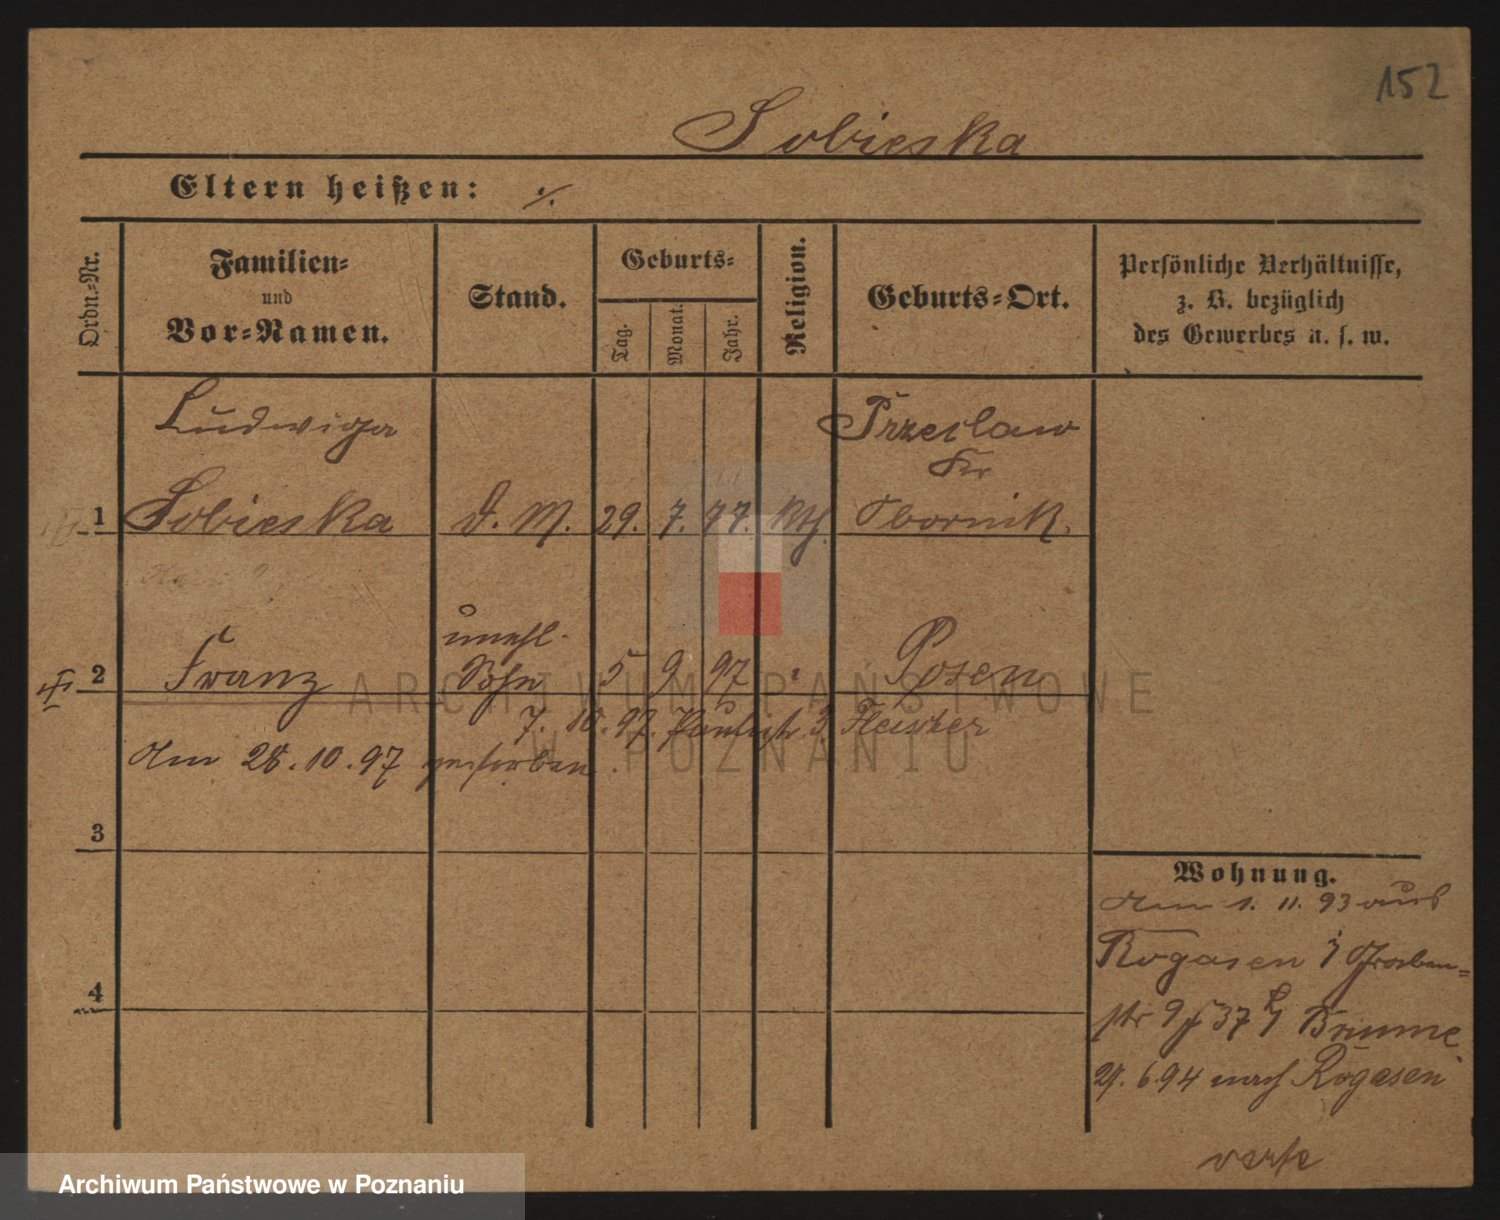 152
Sobieska
Eltern heißen: ·/.
Ordn.-Nr.
Familien-
und
Vor-Namen.
Stand.
Geburts-
Tag.
Monat.
Jahr.
Religion.
Geburts-Ort.
Persönliche Verhältnisse,
z. B. bezüglich
des Gewerbes u. s. w.
Ludwiga
Przeclaw
Kr
1 Sobieska d. M. 29. 7. 77. Kth. Obornik.
unehl.
2 Franz Sohn 5 9 97 " Posen
7. 10. 97. 3. Fleischer
Am 28.10.97 gestorben.
3
4
Wohnung.
Am 1. 11. 93 aus
Rogasen Graben-
str 9 37 Brumme
29. 6.94 nach Rogasen
ARCHIWUM PAŃSTWOWE
W POZNANIU
Archiwum Państwowe w Poznaniu